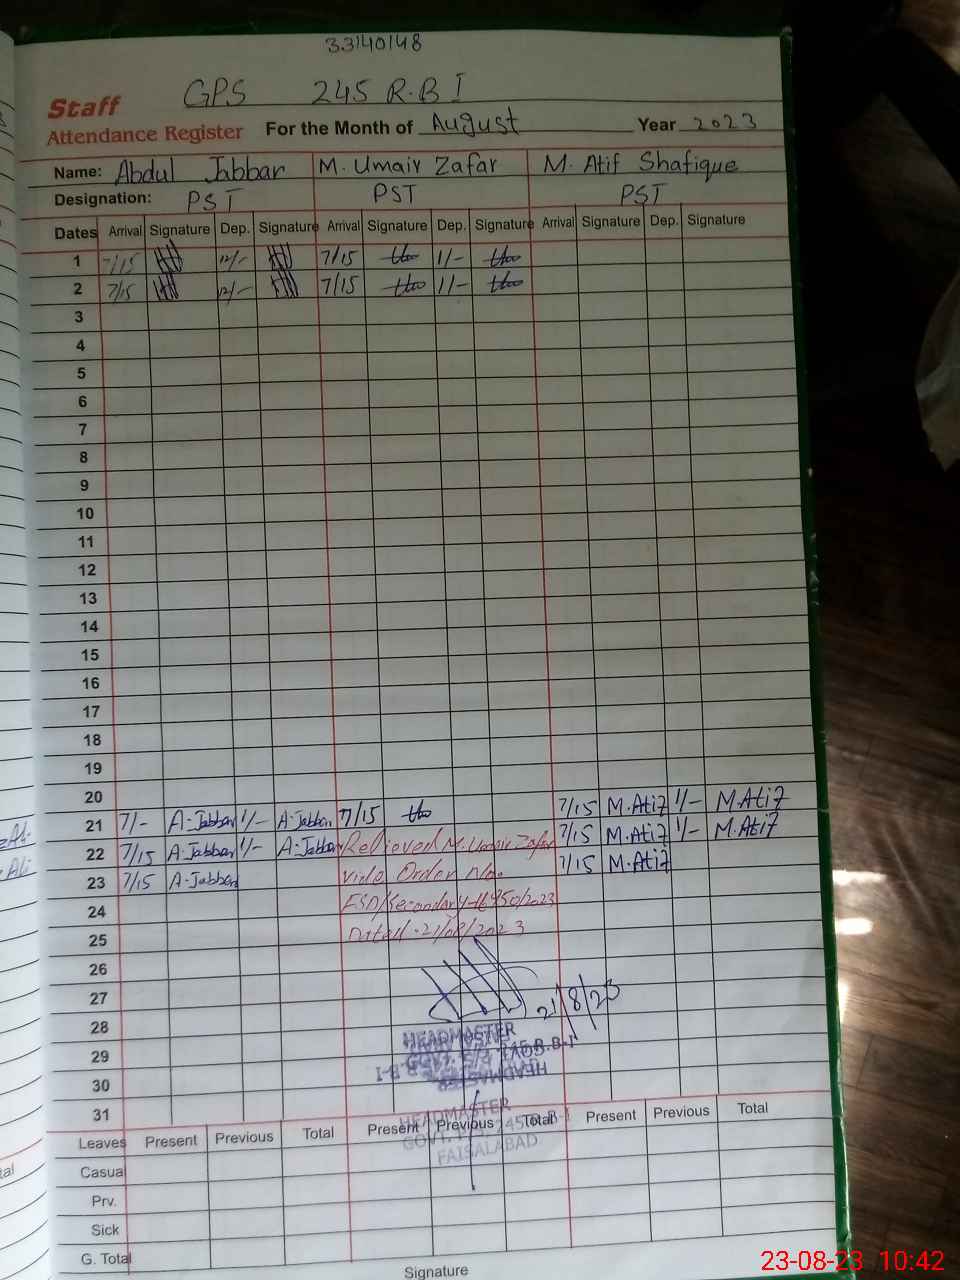 33140148
GPS 245 R.B I
Staff
Attendance Register For the Month of August Year 2023
Name: Abdul Jabbar M. Umair Zafar M. Atif Shafique
Designation: PST PST PST
Dates Arrival Signature Dep. Signature Arrival Signature Dep. Signature Arrival Signature Dep. Signature
1 7/15 12/- 7/15 1/-
2 7/15 12/- 7/15 1/-
3
4
5
6
7
8
9
10
11
12
13
14
15
16
17
18
19
20
21 7/- A-Jabbar 1/- A-Jabbar 7/15 7/15 M.Atif 1/- M.Atif
22 7/15 A-Jabbar 1/- A-Jabbar Relieved M. Umair Zafar 7/15 M.Atif 1/- M.Atif
23 7/15 A-Jabbar vide Order No. 7/15 M.Atif
24
25 Dated:-21/08/2023
26
27 21/8/23
28 HEADMASTER
29
30
31 HEADMASTER
Leaves Present Previous Total Present Previous Total Present Previous Total
FAISALABAD
Casual
Prv.
Sick
G. Total
Signature
23-08-23 10:42